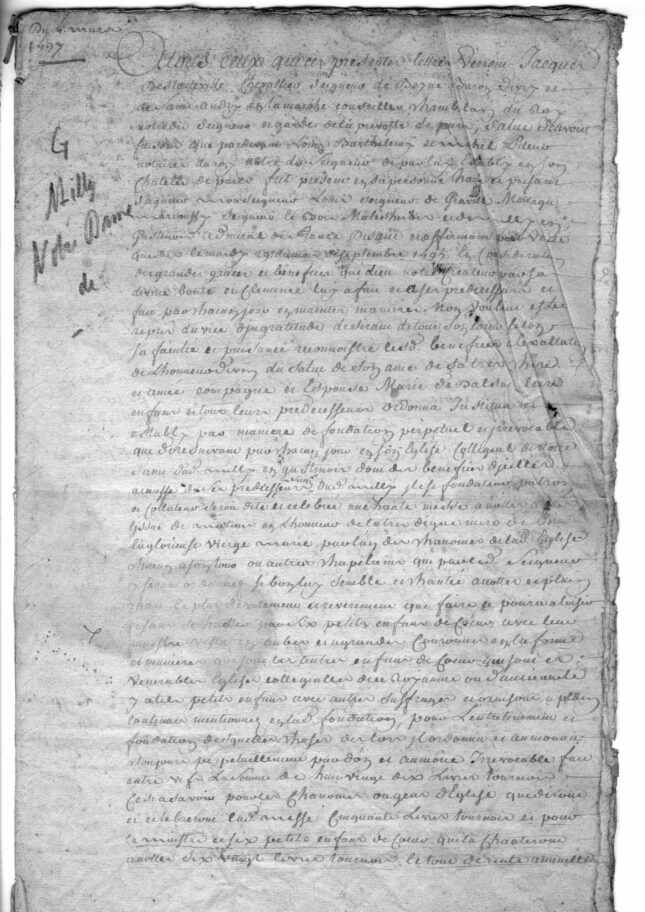 Du 4 mars
1497
G
Milly
Notre Dame
de
A tous ceux qui ces presentes lettres verront Jacques
Destouteville Chevallier Seigneur de Beyne Baron Divry et
de Saint Andry en la marche conseiller Chambellan du Roy
notredit Seigneur et garde de la prevosté de paris, Salut Scavoir
faisons que pardevant Louis Barthelemy et michel
notaires du roy notre dit Seigneur establis en son
Chatelet de paris fut present en sa personne hault et puissant
Seigneur Monseigneur Louis Seigneur de Graville
Marcoussy Seigneur le Bois Malesherbes et de milly en
Gastinois Admiral de france Disant et affirmant pour verité
que des le mardy septembre 1495 En consideration
des grandes graces et benefices que dieu notre Createur par sa
divine bonté et Clemence luy a fait et a ses predecesseurs et
fait par chacun jour en maintes manieres Non voulant estre
repris du vice dingratitude desirant de tout son
sa faculté et puissance reconnoistre lesd. benefices
de Lhonneur divin du Salut de son ame de sa tres chere
et amée compagne et Espouse Marie de Balsac leurs
enfans et tous leurs predecesseurs ordonna Institua et
establit par maniere de fondation perpetuel et irrevocable
que doresnavant par chacun jour en son Eglise Collegial de Notre
Dame dud. milly en gastinois dont des benefices dicelle
a cause de ses predecesseurs dud. milly il est fondateur patron
et Collateur seroit dite et celebrée une haute messe a notte a
issue de matines en Lhonneur de la tres digne mere de Dieu
la glorieuse vierge marie par lun des chanoines de lad. Eglise
chacun a son tour ou autres chapelains qui par led. Seigneur
y seront ordonnez si bon luy semble et chantée a notte et plein
chant le plus devotement et reveremment que faire ce poura
par six petits enfans de Coeur avec leur
maistre vestus en aubes et a grandes Couronnes en la forme
et maniere que sont les autres enfans de Coeur qui sont es
venerables Eglises collegialles de ce Royaume ou d'ancienneté
y a tels petits enfans avec autres Suffrages et oraisons a plein
contenues mentionnez en lad. fondation, pour Lentretenement et
fondation desquelles choses des lors il ordonna et aumona
a toujours perpetuellement par don et aumone Irrevocable fait
entre vifs La Somme de huit vingt dix Livres tournois
Cest a Scavoir pour les Chanoines ou gens d'Eglise qui diront
et celebreront lad. messe Cinquante Livres tournois et pour
le maistre et six petits enfans de Coeur qui la Chanteront
a notte Six vingt livres tournois, le tout de rente annuelle